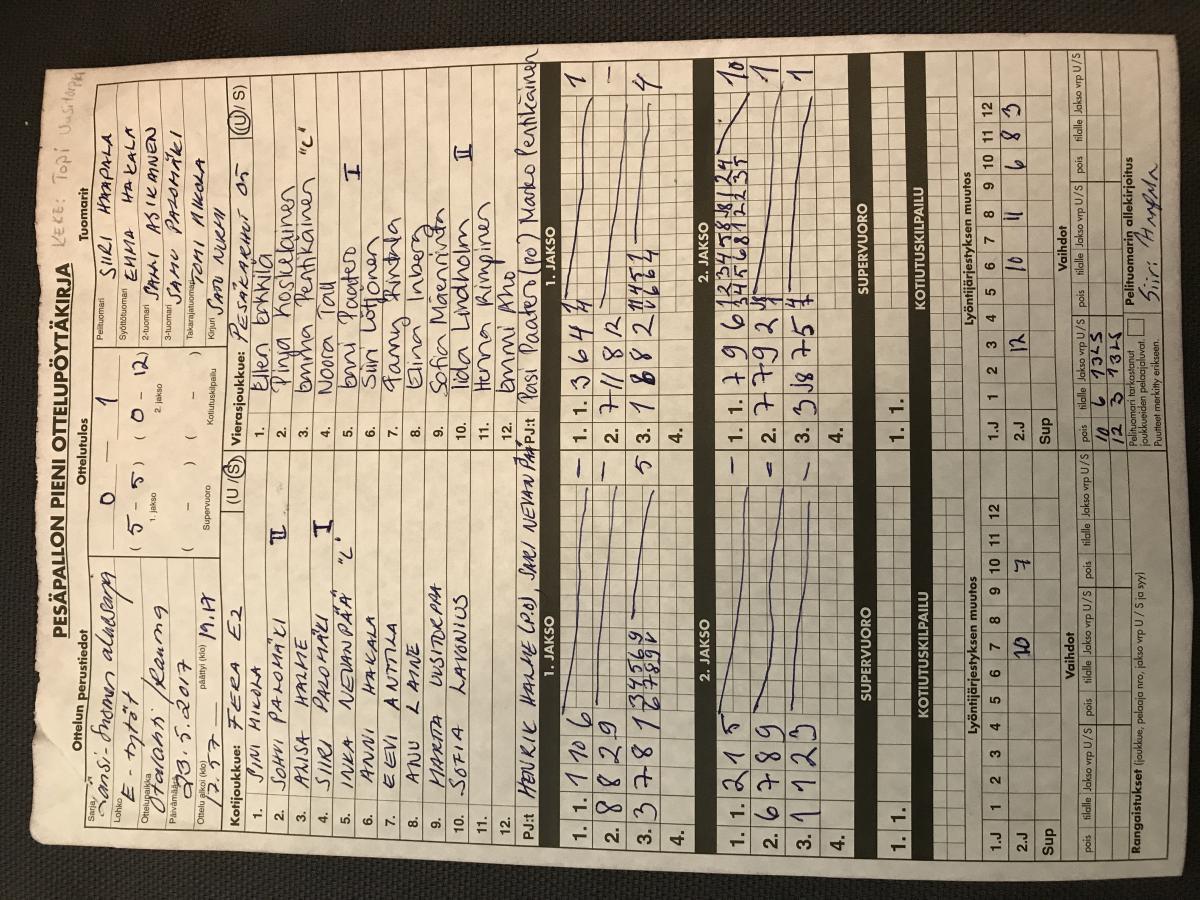 KEKE: Topi Uusitorppa
PESÄPALLON PIENI OTTELUPÖYTÄKIRJA
Ottelun perustiedot
Sarja
Länsi-Suomen aluesarja
Lohko
E-tytöt
Ottelupaikka
Otalahti/Rauma
Päivämäärä
23.5.2017
Ottelu alkoi (klo) päättyi (klo)
17.57 19.17
Ottelutulos
0 1
(5 - 5) (0 - 12)
1. jakso 2. jakso
( - ) ( - )
Supervuoro Kotiutuskilpailu
Tuomarit
Pelituomari SIIRI HAAPALA
Syöttötuomari EMMA HAKALA
2-tuomari SAMI ASIKAINEN
3-tuomari SAMU PALOMÄKI
Takarajatuomari TOMI MIKOLA
Kirjuri SATU NURMI
Kotijoukkue: FERA E2 (U/S)
1. SINI MIKOLA
2. SOHVI PALOMÄKI II
3. ANSA HALME
4. SIIRI PALOMÄKI I
5. INKA NEVANPÄÄ "L"
6. ANNI HAKALA
7. EEVI ANTTILA
8. ANU LAINE
9. MARTA UUSITORPPA
10. SOFIA LAVONIUS
11.
12.
PJ:t HENRIK HALME (P.O), SARI NEVANPÄÄ
Vierasjoukkue: PESÄKARHUT 05 (U/S)
1. Ellen
2. Pinja Koskelainen
3. Emma Pentikäinen "L"
4. Noora Tall
5. Enni Paatero I
6. Siiri Lötjönen
7. Fanny
8. Elina Inberg
9. Sofia Mäenrinta
10. Iida Lindholm II
11. Henna Rimpinen
12. Emmi Aho
PJ:t Pasi Paatero (PO) Marko Pentikäinen
1. JAKSO 1. JAKSO
1. 1. 1 10 6 -
2. 8 8 2 9 -
3. 3 7 8 1 5
4.
1. 1. 3 6 4 1
2. 7 11 8 12 -
3. 1 8 8 2 4
4.
2. JAKSO 2. JAKSO
1. 1. 2 1 5 -
2. 6 7 8 9 -
3. 1 1 2 3 -
4.
1. 1. 7 9 6 10
2. 7 7 9 2 1
3. 7 1
4.
SUPERVUORO SUPERVUORO
1. 1. 1. 1.
KOTIUTUSKILPAILU KOTIUTUSKILPAILU
Lyöntijärjestyksen muutos
1.J 1 2 3 4 5 6 7 8 9 10 11 12
2.J 10 7
Sup
Lyöntijärjestyksen muutos
1.J 1 2 3 4 5 6 7 8 9 10 11 12
2.J 12 10 11 6 8 3
Sup
Vaihdot
pois tilalle Jakso vrp U/S pois tilalle Jakso vrp U/S pois tilalle Jakso vrp U/S
Vaihdot
pois tilalle Jakso vrp U/S pois tilalle Jakso vrp U/S pois tilalle Jakso vrp U/S
10 6 1 3 2 S
12 3 1 3 2 S
Rangaistukset (joukkue, pelaaja nro, jakso vrp U / S ja syy)
Pelituomari tarkastanut
joukkueiden pelaajaluvat.
Puutteet merkitty erikseen.
Pelituomarin allekirjoitus
Siiri Haapala